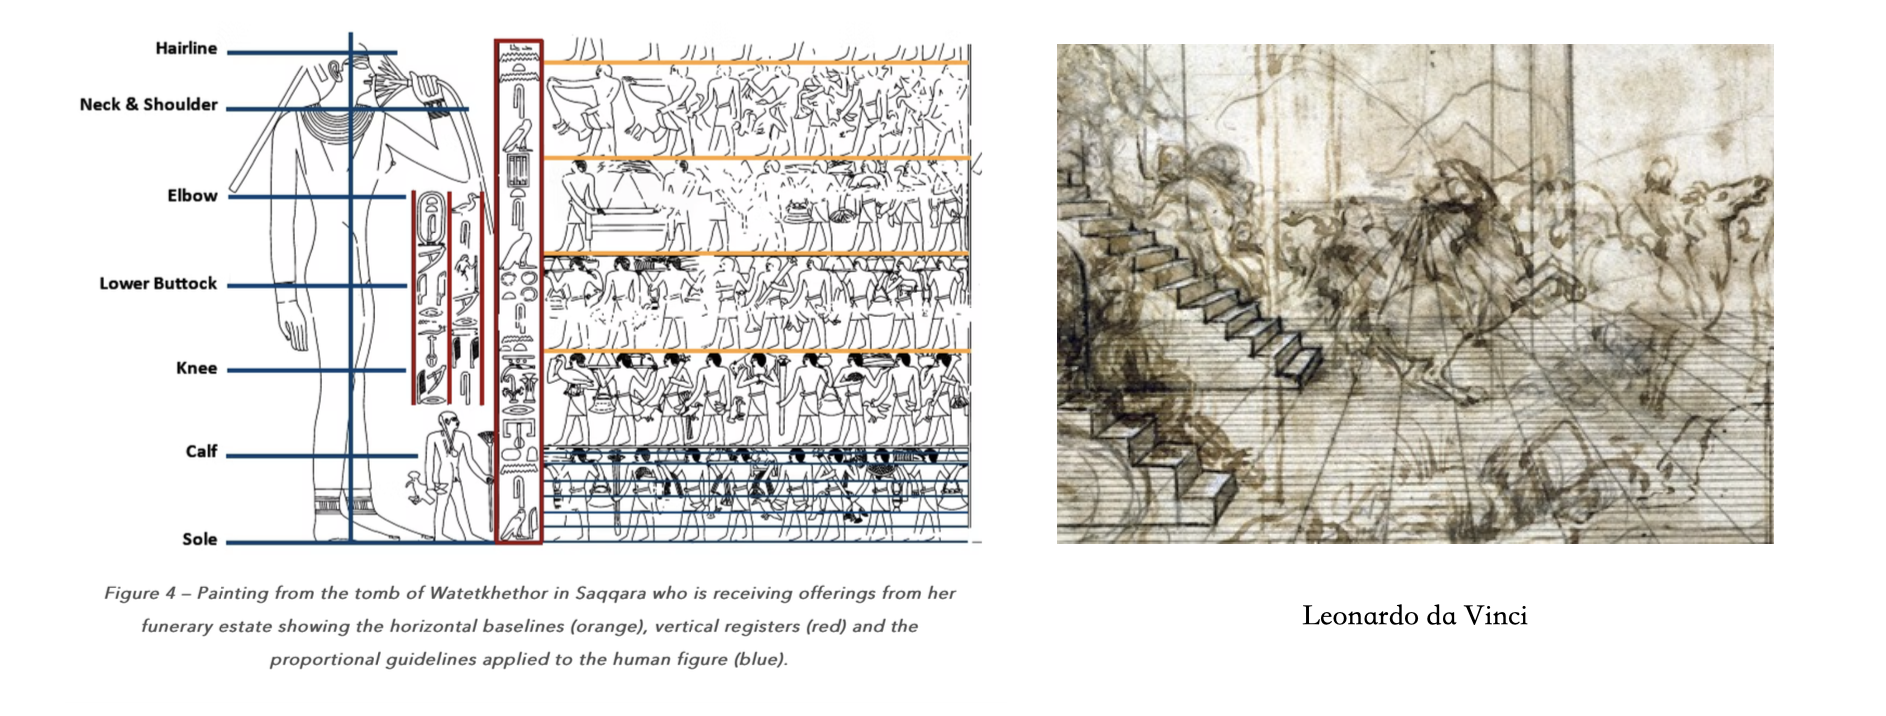 Hairline
Neck & Shoulder
Elbow
Lower Buttock
Knee
Calf
Sole
Figure 4 – Painting from the tomb of Watetkhethor in Saqqara who is receiving offerings from her
funerary estate showing the horizontal baselines (orange), vertical registers (red) and the
proportional guidelines applied to the human figure (blue).
Leonardo da Vinci